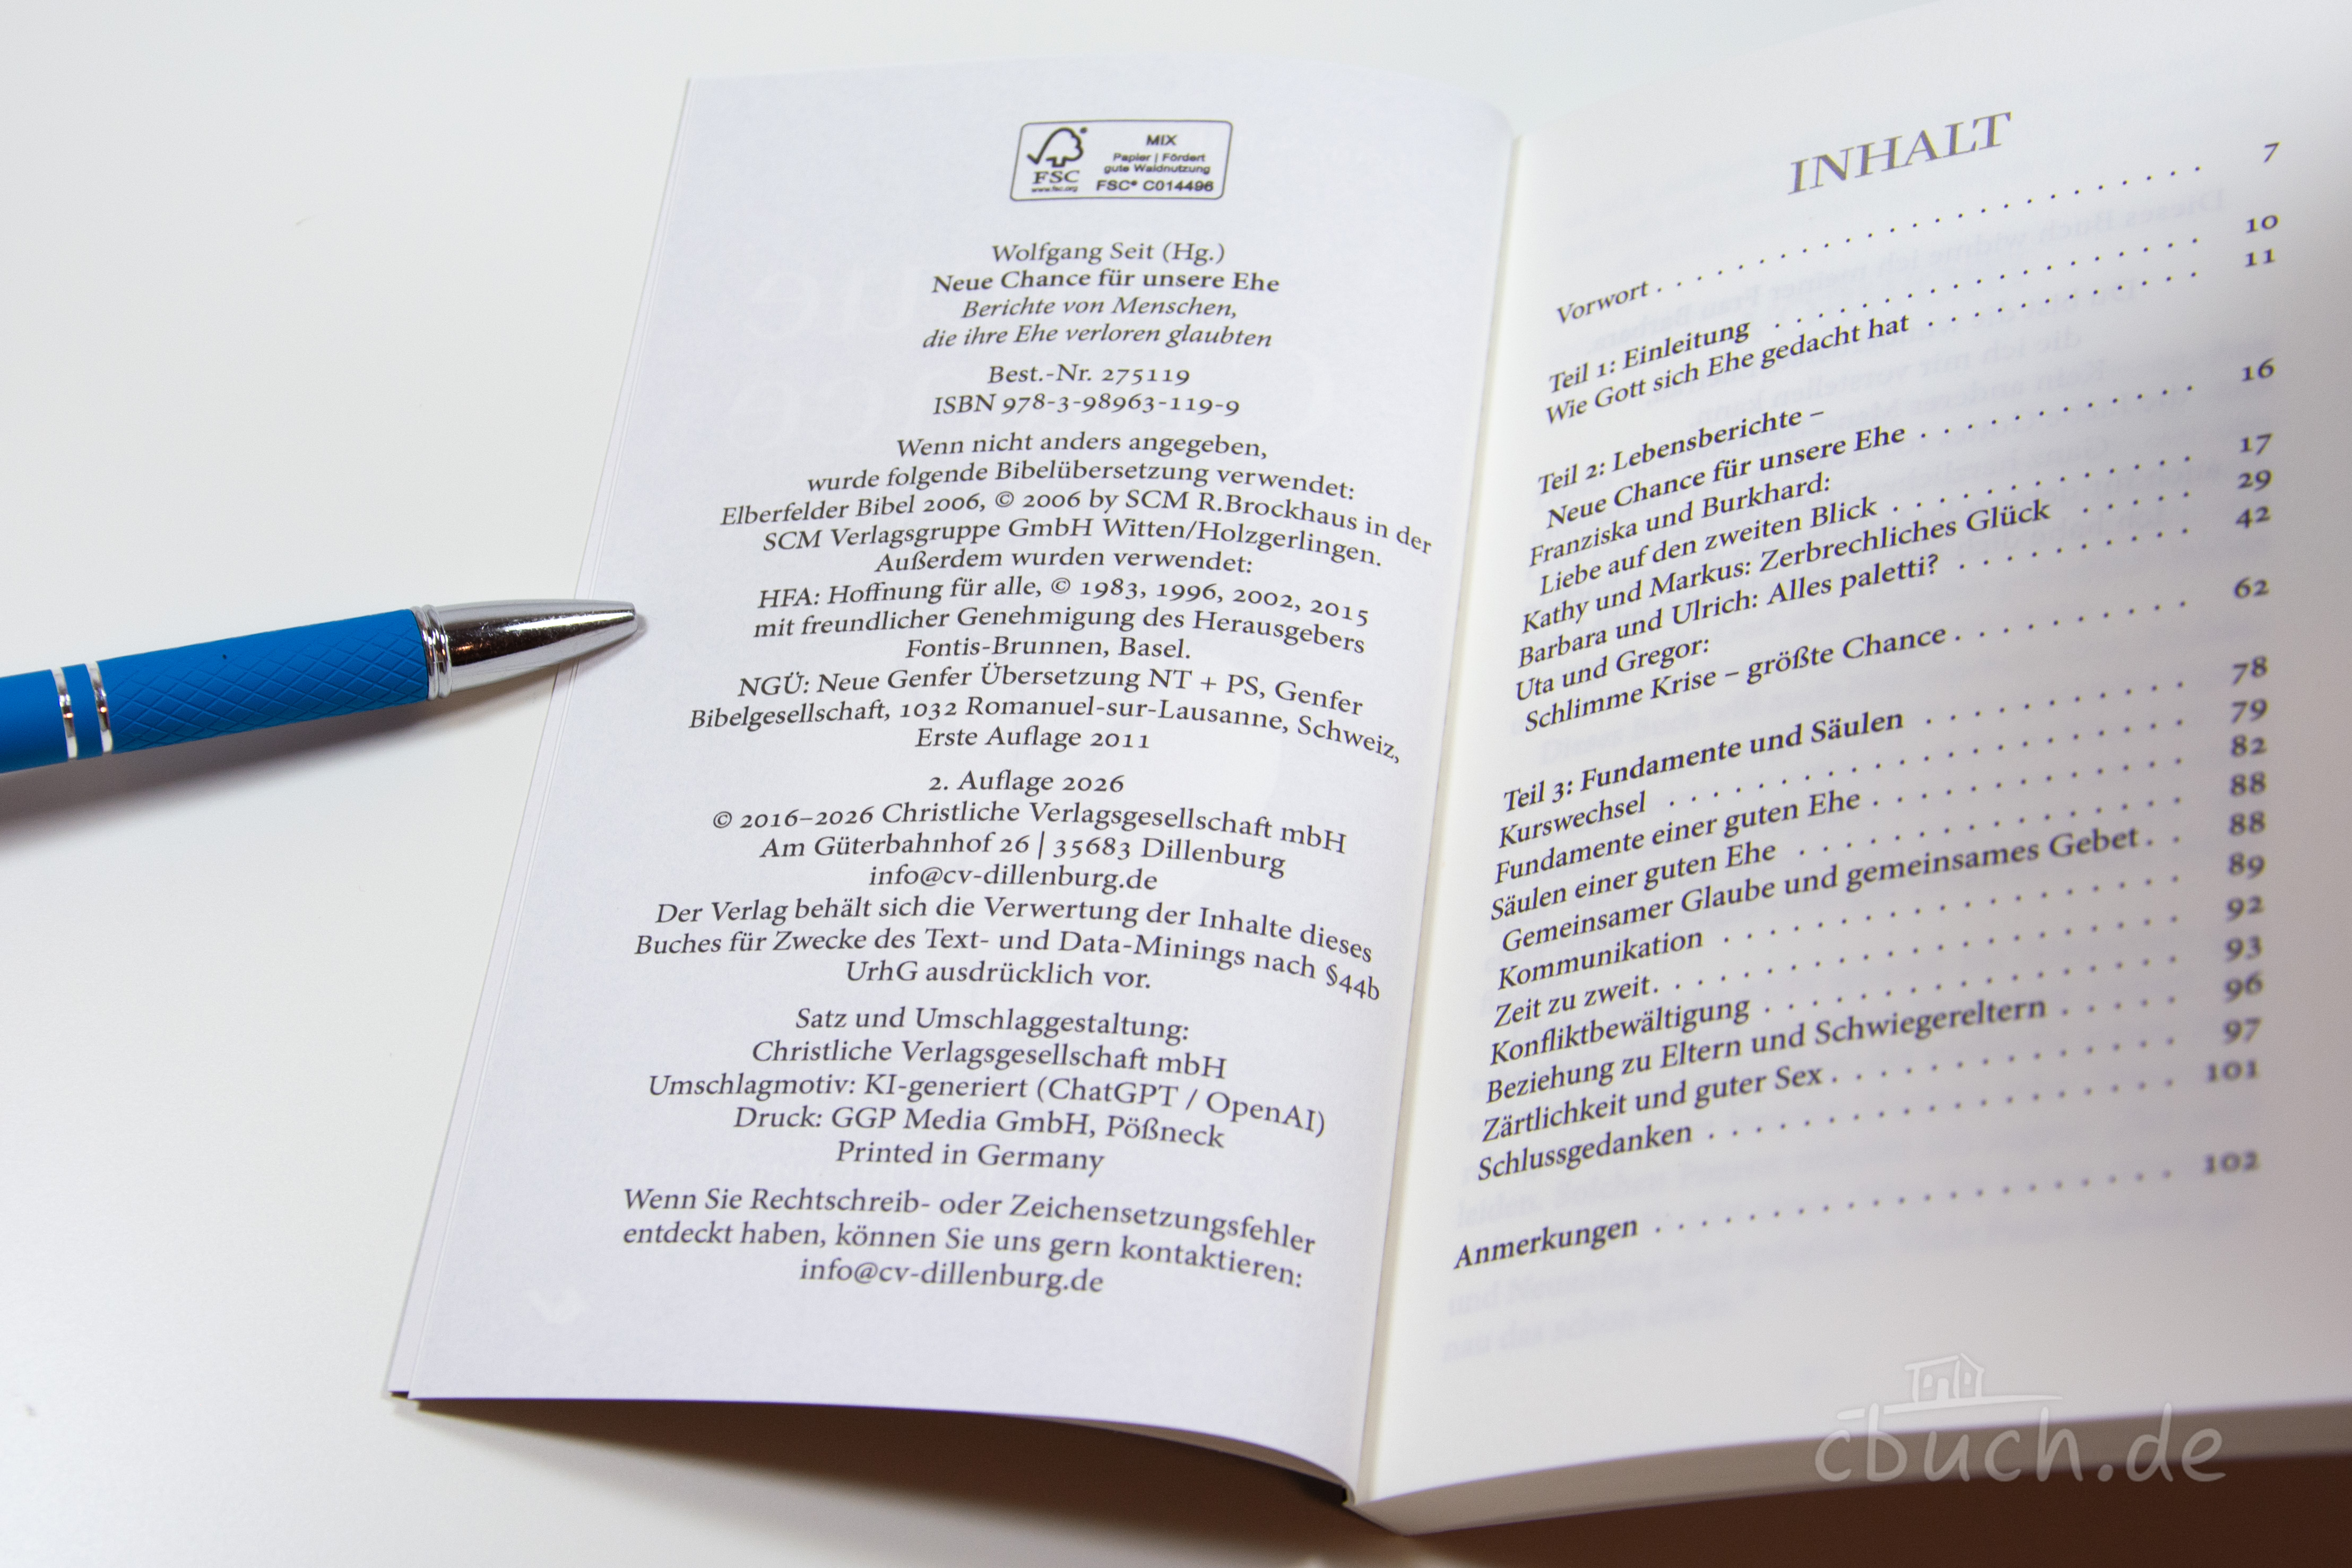 FSC
www.fsc.org
MIX
Papier | Fördert
gute Waldnutzung
FSC® C014496
Wolfgang Seit (Hg.)
Neue Chance für unsere Ehe
Berichte von Menschen,
die ihre Ehe verloren glaubten
Best.-Nr. 275119
ISBN 978-3-98963-119-9
Wenn nicht anders angegeben,
wurde folgende Bibelübersetzung verwendet:
Elberfelder Bibel 2006, © 2006 by SCM R.Brockhaus in der
SCM Verlagsgruppe GmbH Witten/Holzgerlingen.
Außerdem wurden verwendet:
HFA: Hoffnung für alle, © 1983, 1996, 2002, 2015
mit freundlicher Genehmigung des Herausgebers
Fontis-Brunnen, Basel.
NGÜ: Neue Genfer Übersetzung NT + PS, Genfer
Bibelgesellschaft, 1032 Romanuel-sur-Lausanne, Schweiz,
Erste Auflage 2011
2. Auflage 2026
© 2016–2026 Christliche Verlagsgesellschaft mbH
Am Güterbahnhof 26 | 35683 Dillenburg
info@cv-dillenburg.de
Der Verlag behält sich die Verwertung der Inhalte dieses
Buches für Zwecke des Text- und Data-Minings nach §44b
UrhG ausdrücklich vor.
Satz und Umschlaggestaltung:
Christliche Verlagsgesellschaft mbH
Umschlagmotiv: KI-generiert (ChatGPT / OpenAI)
Druck: GGP Media GmbH, Pößneck
Printed in Germany
Wenn Sie Rechtschreib- oder Zeichensetzungsfehler
entdeckt haben, können Sie uns gern kontaktieren:
info@cv-dillenburg.de
INHALT
Vorwort . . . . . . . . . . . . . . . . . . . . . 7
Teil 1: Einleitung . . . . . . . . . . . . . . . . . 10
Wie Gott sich Ehe gedacht hat . . . . . . . . . . . 11
Teil 2: Lebensberichte –
Neue Chance für unsere Ehe . . . . . . . . . . . . 16
Franziska und Burkhard:
Liebe auf den zweiten Blick . . . . . . . . . . . . 17
Kathy und Markus: Zerbrechliches Glück . . . . . 29
Barbara und Ulrich: Alles paletti? . . . . . . . . . 42
Uta und Gregor:
Schlimme Krise – größte Chance . . . . . . . . . . 62
Teil 3: Fundamente und Säulen . . . . . . . . . . . 78
Kurswechsel . . . . . . . . . . . . . . . . . . . . 79
Fundamente einer guten Ehe . . . . . . . . . . . . 82
Säulen einer guten Ehe . . . . . . . . . . . . . . . 88
Gemeinsamer Glaube und gemeinsames Gebet . . 88
Kommunikation . . . . . . . . . . . . . . . . . . 89
Zeit zu zweit . . . . . . . . . . . . . . . . . . . . 92
Konfliktbewältigung . . . . . . . . . . . . . . . . 93
Beziehung zu Eltern und Schwiegereltern . . . . . 96
Zärtlichkeit und guter Sex . . . . . . . . . . . . . 97
Schlussgedanken . . . . . . . . . . . . . . . . . . 101
Anmerkungen . . . . . . . . . . . . . . . . . . . 102
cbuch.de